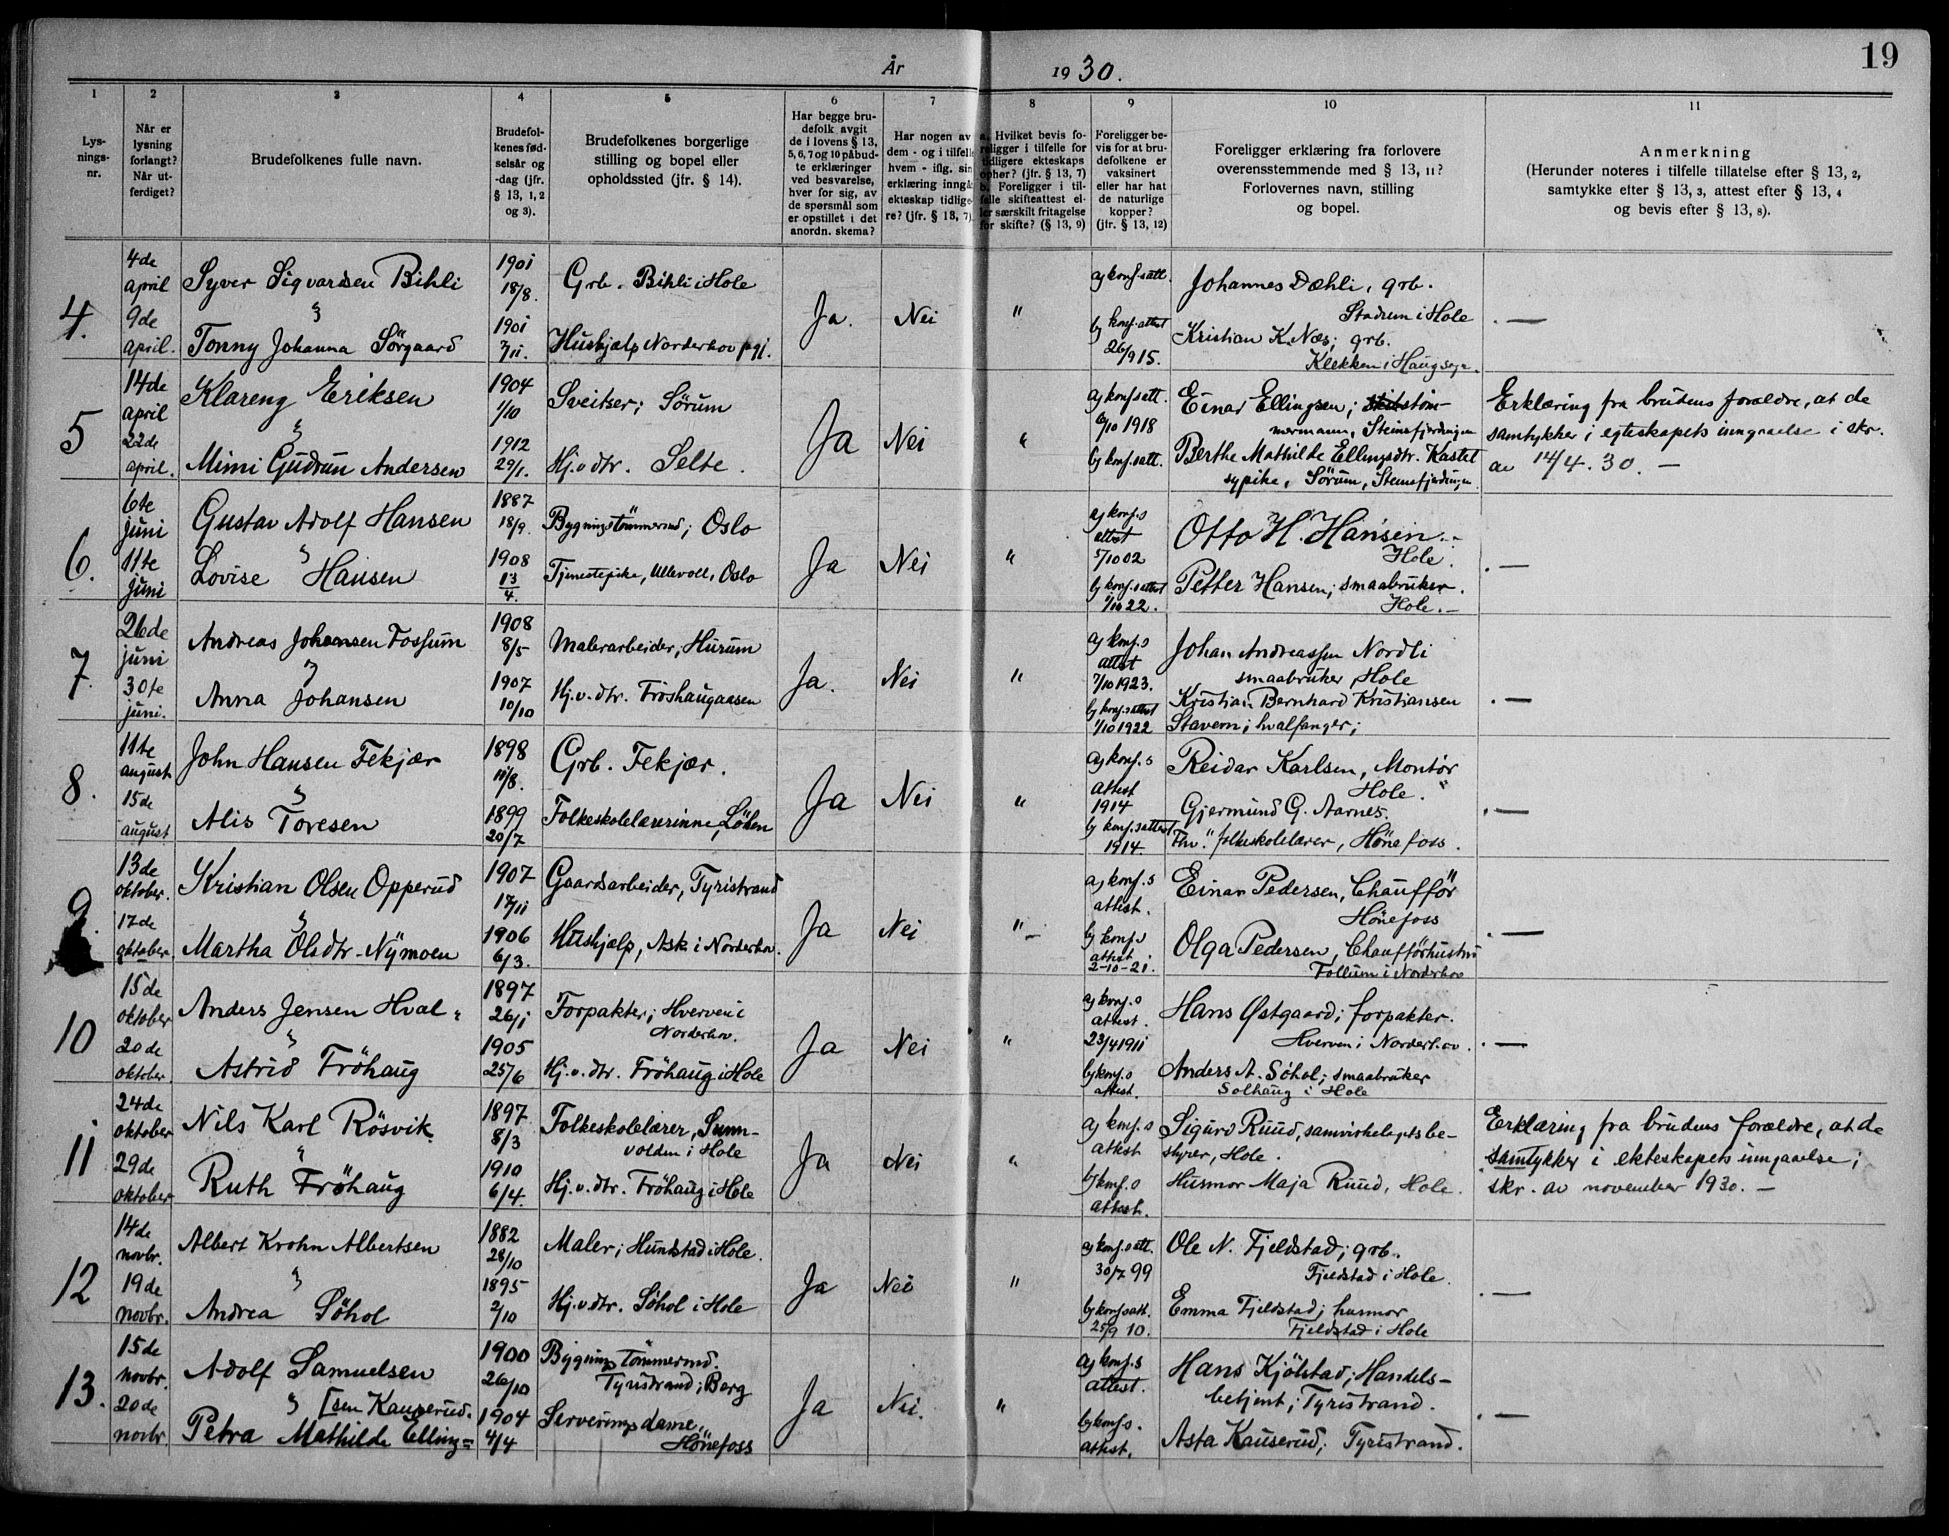 År 1930.
19
1
2
3
4
5
6
7
8
9
10
11
Lys-
nings-
nr.
Når er
lysning
forlangt?
Når ut-
ferdiget?
Brudefolkenes fulle navn.
Brudefol-
kenes fød-
selsår og
-dag (jfr.
§ 13, 1, 2
og 3).
Brudefolkenes borgerlige
stilling og bopel eller
opholdssted (jfr. § 14).
Har begge bru-
defolk avgit
de i lovens § 13,
5, 6, 7 og 10 påbud-
te erklæringer
ved besvarelse,
hver for sig, av
de spørsmål som
er opstillet i det
anordn. skema?
Har nogen av
dem - og i tilfelle
hvem - iflg. sin
erklæring inngåt
ekteskap tidlige-
re? (jfr. § 13, 7).
a. Hvilket bevis fo-
religger i tilfelle for
tidligere ekteskaps
ophør? (jfr. § 13, 7)
b. Foreligger i til-
felle skifteattest el-
ler særskilt fritagelse
for skifte? (§ 13, 9)
Foreligger be-
vis for at bru-
defolkene er
vaksinert
eller har hat
de naturlige
kopper?
(jfr. § 13, 12)
Foreligger erklæring fra forlovere
overensstemmende med § 13, 11?
Forlovernes navn, stilling
og bopel.
Anmerkning
(Herunder noteres i tilfelle tillatelse efter § 13, 2,
samtykke efter § 13, 3, attest efter § 13, 4
og bevis efter § 13, 8).
4.
4de
april
9de
april.
Syver Sigvardsen Bihli
"
Tonny Johanna Sörgaard
1901
18/8.
1901
7/11.
Grb. Bihli i Hole
Hushjælp Norderhov pgj.
Ja.
Nei
"
a) konf.satt.
b) konf.attest
26/9 15.
Johannes Dæhli, grb.
Stadum i Hole
Kristian K. Næs; grb.
Klekken i Haugsogn.
. —
5
14de
april
22de
april.
Klareng Eriksen
"
Mimi Gudrun Andersen
1904
1/10
1912
29/1.
Sveitser; Sörum
Hj.v.dtr. Selte.
Ja
Nei
"
a) konf.satt.
6/10 1918
b) konf.satt.
Einar Ellingsen; töm-
mermann, Steinsfjerdingen
Berthe Mathilde Ellingsdtr. Kastet
sypike, Sörum, Steinsfjerdingen
Erklæring fra brudens forældre, at de
samtykker i egteskapets inngaaelse i skr.
av 14/4. 30. —
6.
6te
juni
11te
juni
Gustav Adolf Hansen
"
Lovise Hansen
1887
18/9.
1908
13/4.
Bygningstömmermd; Oslo
Tjenestepike, Ullevoll, Oslo
Ja
Nei
"
a) konf.s
attest
5/10 02
b) konf.sattest
1/10 22.
Otto H. Hansen.-
Hole.
Petter Hansen; smaabruker.
Hole. —
. —
7.
26de
juni
30te
juni.
Andreas Johansen Fossum
"
Anna Johansen
1908
8/5
1907
10/10
Malerarbeider, Hurum
Hj.v.dtr. Fröshaugaasen
Ja.
Nei
"
a) konf.s
attest
7/10 1923.
b) konf.sattest
1/10 1922
Johan Andreassen Nordli
smaabruker, Hole
Kristian Bernhard Kristiansen
Stavern; hvalfanger;
. —
8.
11te
august
15de
august
John Hansen Fekjær
"
Alis Toresen
1898
11/8.
1899
20/7
Grb. Fekjær.
Folkeskolelærerinne, Löken
Ja
Nei
"
a) konf.s
attest
1914
b) konf.sattest
1914.
Reidar Karlsen, Montör
Hole.
Gjermund G. Aarnes.
Fhv. folkeskolelærer, Hönefoss.
. —
9.
13de
oktober.
17de
oktober.
Kristian Olsen Opperud
"
Martha Olsdtr. Nymoen
1907
17/11
1906
6/3.
Gaardsarbeider, Tyristrand
Hushjælp, Ask i Norderhov.
Ja
Nei
"
a) konf.s
attest.
b) konf.s
attest
2-10-21.
Einar Pedersen, Chaufför
Hönefoss
Olga Pedersen, Chaufförhustru
Follum i Norderhov
. —
10
15de
oktober
20de
oktober.
Anders Jensen Hval
"
Astrid Fröhaug
1897
26/1
1905
25/6
Forpakter; Hverven i
Norderhov.
Hj.v.dtr. Fröhaug i Hole
Ja
Nei
"
a) konf.s
attest.
23/4 1911
b) konf.s
attest.
Hans Østgaard; forpakter.
Hverven i Norderhov.
Anders A. Söhol; smaabruker
Solhaug i Hole
. —
11
24de
oktober
29de
oktober
Nils Karl Rösvik.
"
Ruth Fröhaug
1897
8/3
1910
6/4.
Folkeskolelærer, Sunn-
volden i Hole
Hj.v.dtr. Fröhaug i Hole
Ja
Nei
"
a) konf.s
attest
b) konf.s
attest.
Sigurd Ruud, samvirkelagsbe-
styrer, Hole.
Husmor Maja Ruud, Hole.
Erklæring fra brudens forældre, at de
samtykker i ekteskapets inngaaelse;
skr. av november 1930. —
12
14de
novbr.
19de
novbr.
Albert Krohn Albertsen
"
Andrea Söhol
1882
28/10
1895
2/10
Maler; Hundstad i Hole.
Hj.v.dtr. Söhol i Hole
Ja
Nei
"
a) konf.satt.
30/7 99
b) konf.satt.
25/9 10.
Ole N. Fjeldstad; grb.
Fjeldstad i Hole.
Emma Fjeldstad; husmor
Fjeldstad i Hole
. —
13.
15de
novbr.
20de
novbr.
Adolf Samuelsen
" [sen Kauserud.
Petra Mathilde Elling=
1900
26/10
1904
4/4
Bygningstömmermd.
Tyristrand; Berg
Serveringsdame,
Hönefoss
Ja
Nei.
"
a) konf.s
attest.
b) konf.s.
attest.
Hans Kjölstad; Handels-
betjent; Tyristrand.
Asta Kauserud; Tyristrand.
. —